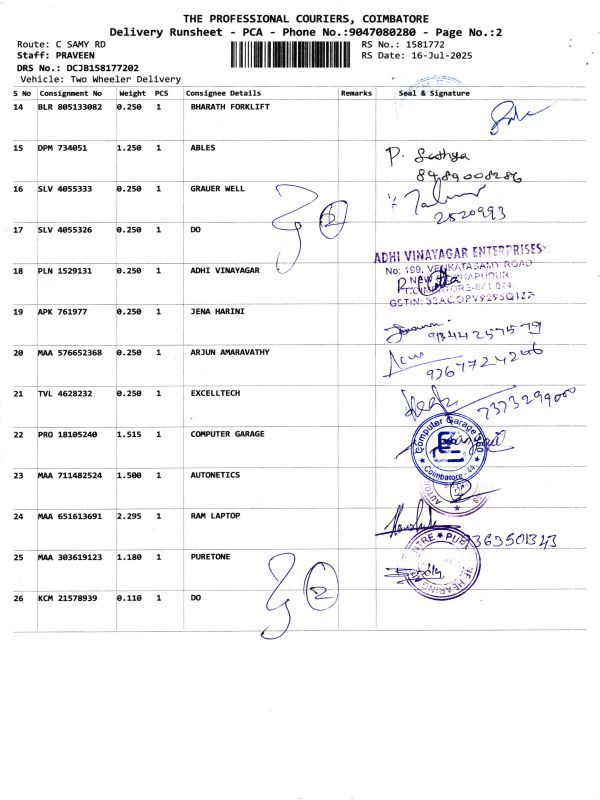 THE PROFESSIONAL COURIERS, COIMBATORE
Delivery Runsheet - PCA - Phone No.:9047080280 - Page No.:2
Route: C SAMY RD
RS No.: 1581772
Staff: PRAVEEN
RS Date: 16-Jul-2025
DRS No.: DCJB158177202
Vehicle: Two Wheeler Delivery
S No Consignment No Weight PCS Consignee Details Remarks Seal & Signature
14 BLR 805133082 0.250 1 BHARATH FORKLIFT
15 DPM 734051 1.250 1 ABLES
P. Sathya
8489008286
16 SLV 4055333 0.250 1 GRAUER WELL
2520993
2
17 SLV 4055326 0.250 1 DO
ADHI VINAYAGAR ENTERPRISES
No: 199, VENKATASAMY ROAD
18 PLN 1529131 0.250 1 ADHI VINAYAGAR
GSTIN: 33ACOPV9295Q1ZA
19 APK 761977 0.250 1 JENA HARINI
9344257579
20 MAA 576652368 0.250 1 ARJUN AMARAVATHY
9367724246
21 TVL 4628232 0.250 1 EXCELLTECH
7373299000
22 PRO 18105240 1.515 1 COMPUTER GARAGE
Computer Garage
Coimbatore - 44
23 MAA 711482524 1.500 1 AUTONETICS
24 MAA 651613691 2.295 1 RAM LAPTOP
9363501343
25 MAA 303619123 1.180 1 PURETONE
HEARING
2
26 KCM 21578939 0.110 1 DO